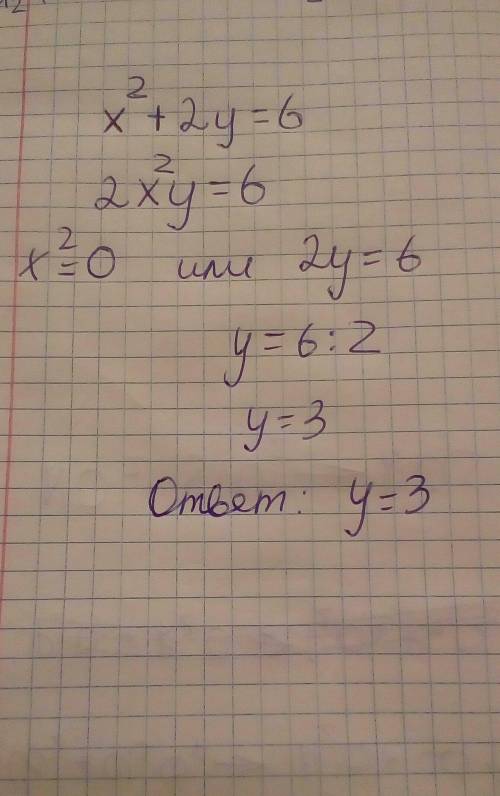 x² + 2y = 6
2x²y = 6
x² = 0 или 2y = 6
y = 6 : 2
y = 3
Ответ: y = 3